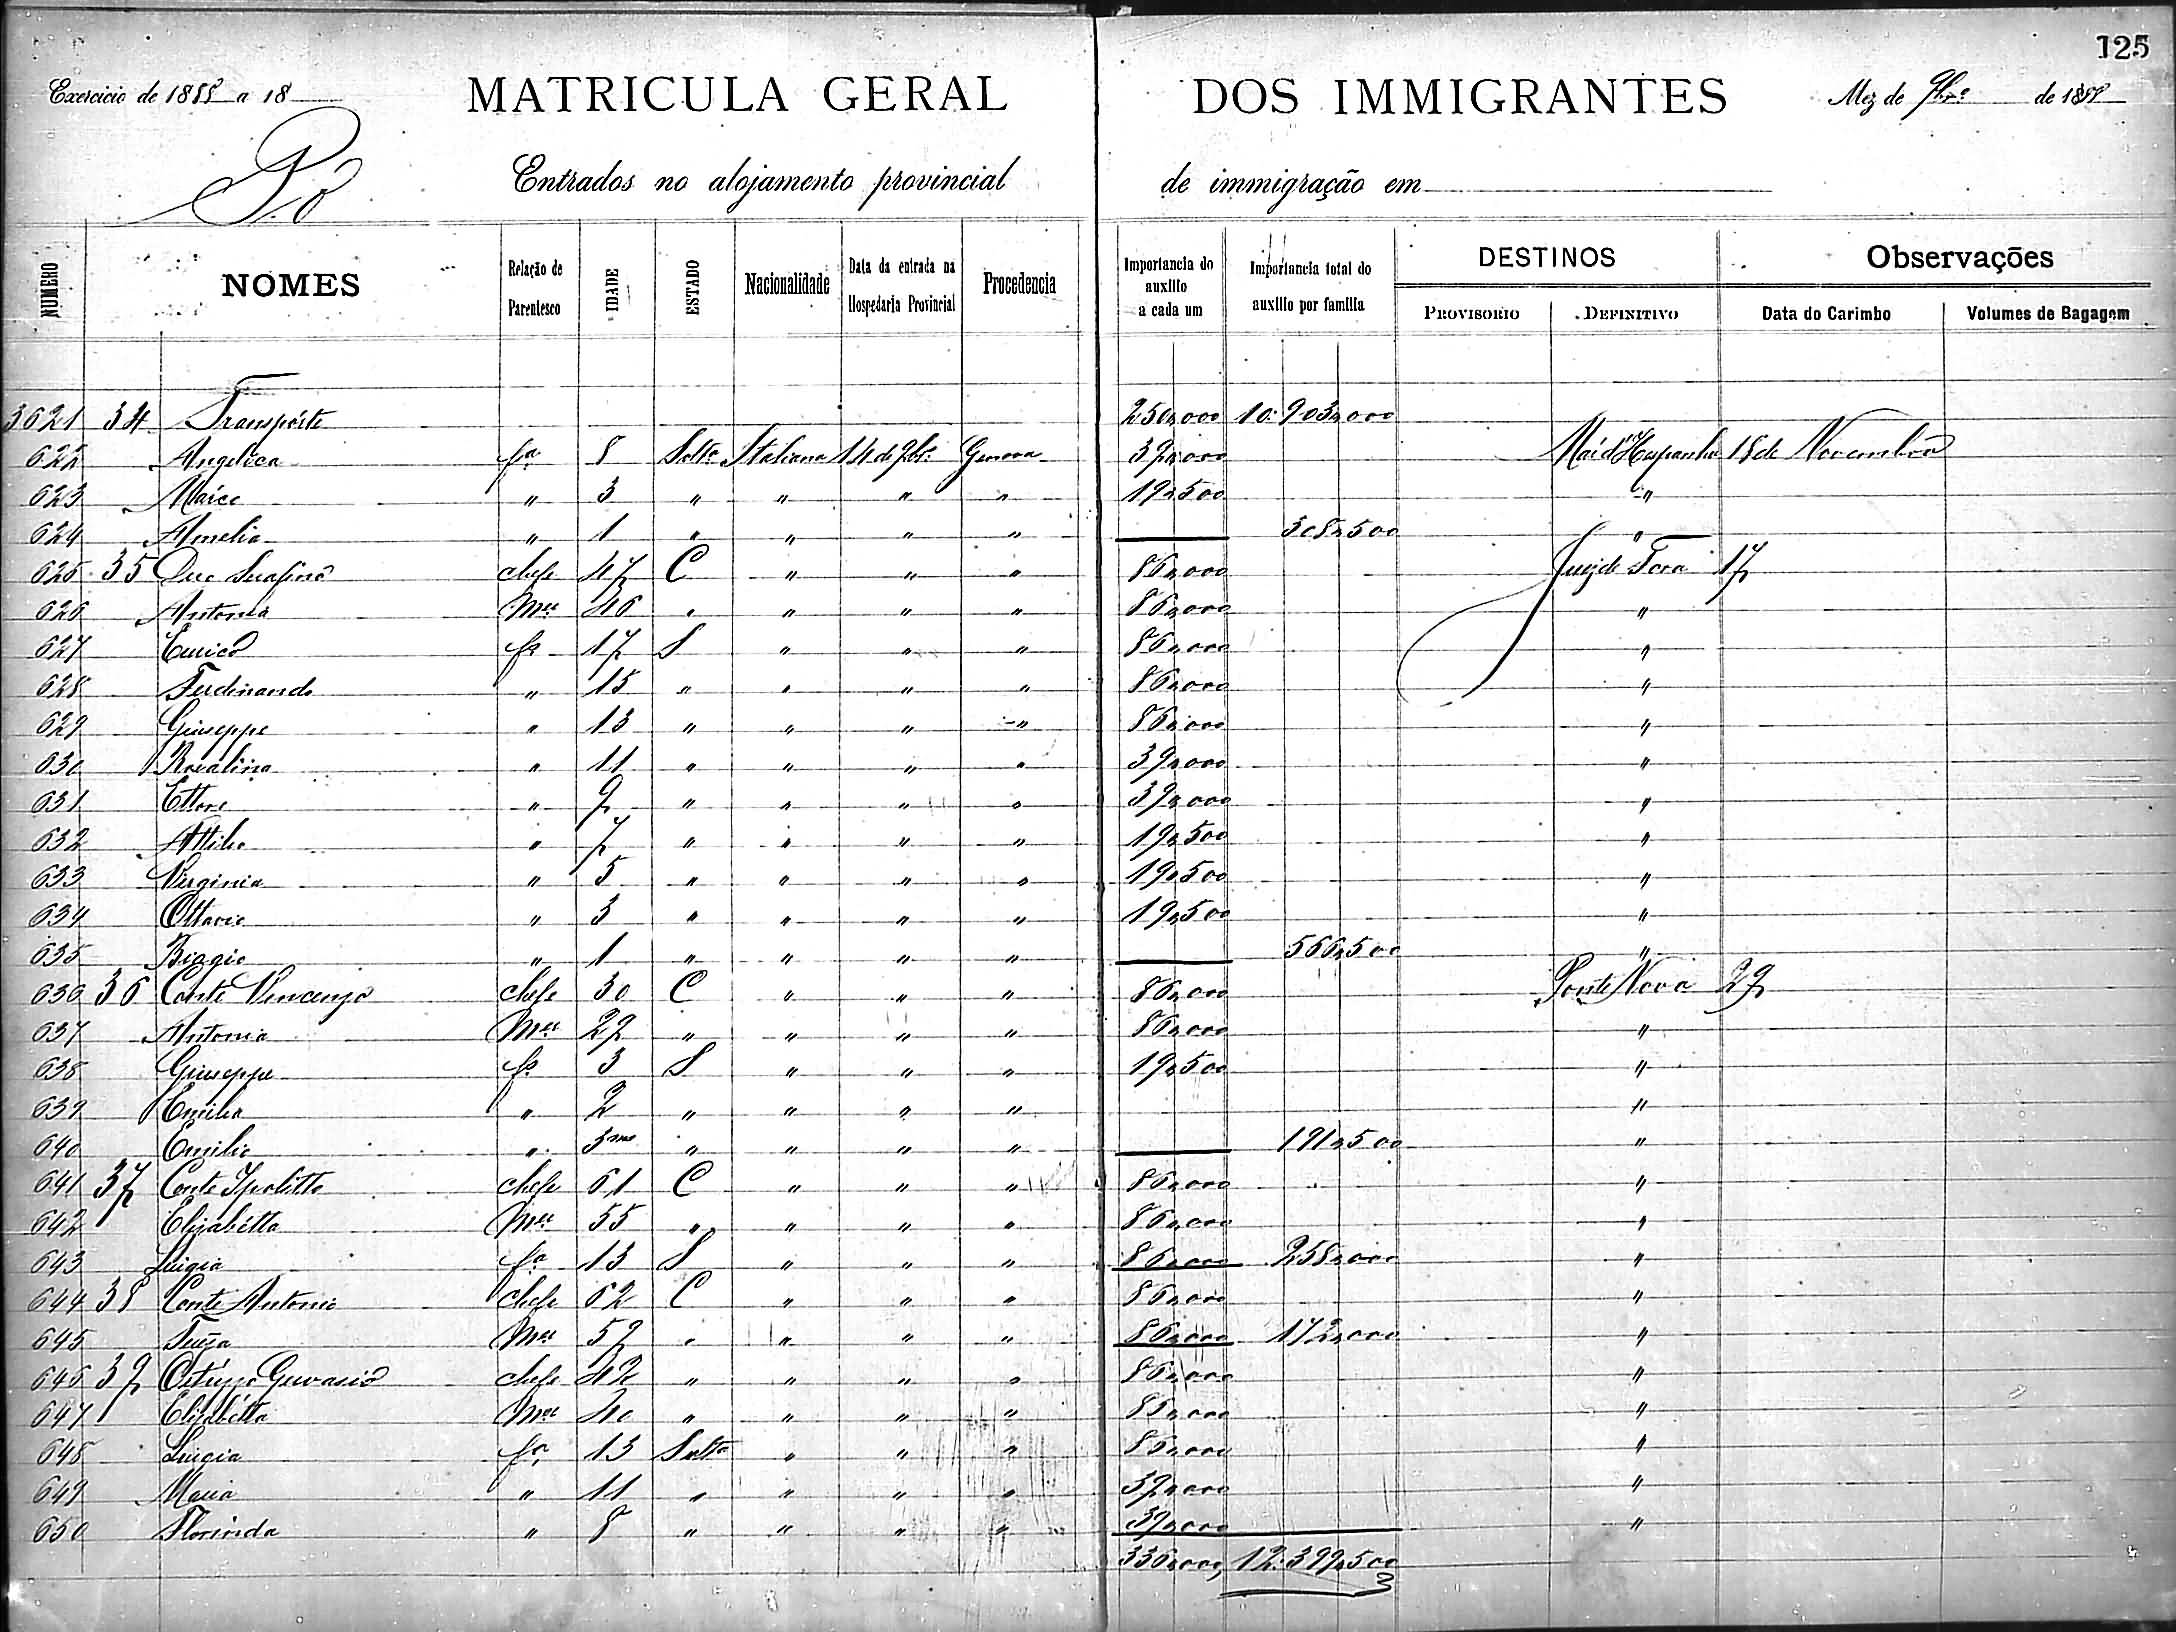 125
Exercicio de 1888 a 18
MATRICULA GERAL DOS IMMIGRANTES
Mez de 9bro de 1888
Entrados no alojamento provincial de immigração em
NUMERO NOMES Relação de Parentesco IDADE ESTADO Nacionalidade Data da entrada na Hospedaria Provincial Procedencia Importancia do auxilio a cada um Importancia total do auxilio por familia DESTINOS PROVISORIO DEFINITIVO Observações Data do Carimbo Volumes de Bagagem
3621 34 Transporte 250,000 10:903,000
622 Angelica fa 8 Solta Italiana 14 de 9bro Genova 39,000 Mar d'Hespanha 18 de Novembro
623 3 " " " " 19,500 "
624 Amelia " 1 " " " " 308,500 "
625 35 Serafino chefe 47 C " " " 86,000 Juiz de Fora 17
626 Antonia Mer 46 " " " " 86,000 "
627 Enrico fo 17 S " " " 86,000 "
628 Ferdinando " 15 " " " " 86,000 "
629 Giuseppe " 13 " " " " 86,000 "
630 Rosalina " 11 " " " " 39,000 "
631 Ettore " 9 " " " " 39,000 "
632 Attilio " 7 " " " " 19,500 "
633 Virginia " 5 " " " " 19,500 "
634 Ottavio " 3 " " " " 19,500 "
635 Biagio " 1 " " " " 566,500 "
636 36 Conte Vincenzo chefe 30 C " " " 86,000 Ponte Nova 29
637 Antonia Mer 29 " " " " 86,000 "
638 Giuseppe fo 3 S " " " 19,500 "
639 Emilia " 2 " " " " "
640 Emilio " 3 mes " " " " 191,500 "
641 37 Conte Ipolitto chefe 61 C " " " 86,000 "
642 Elizabetta Mer 55 " " " " 86,000 "
643 Luigia fa 13 S " " " 86,000 258,000 "
644 38 Conte Antonio chefe 62 C " " " 86,000 "
645 Mer 59 " " " " 86,000 172,000 "
646 39 Gervasio chefe 42 " " " " 86,000 "
647 Elizabetta Mer 40 " " " " 86,000 "
648 Luigia fa 13 Solta " " " 86,000 "
649 Maria " 11 " " " " 39,000 "
650 Florinda " 8 " " " " 39,000 "
336,000 12:399,500